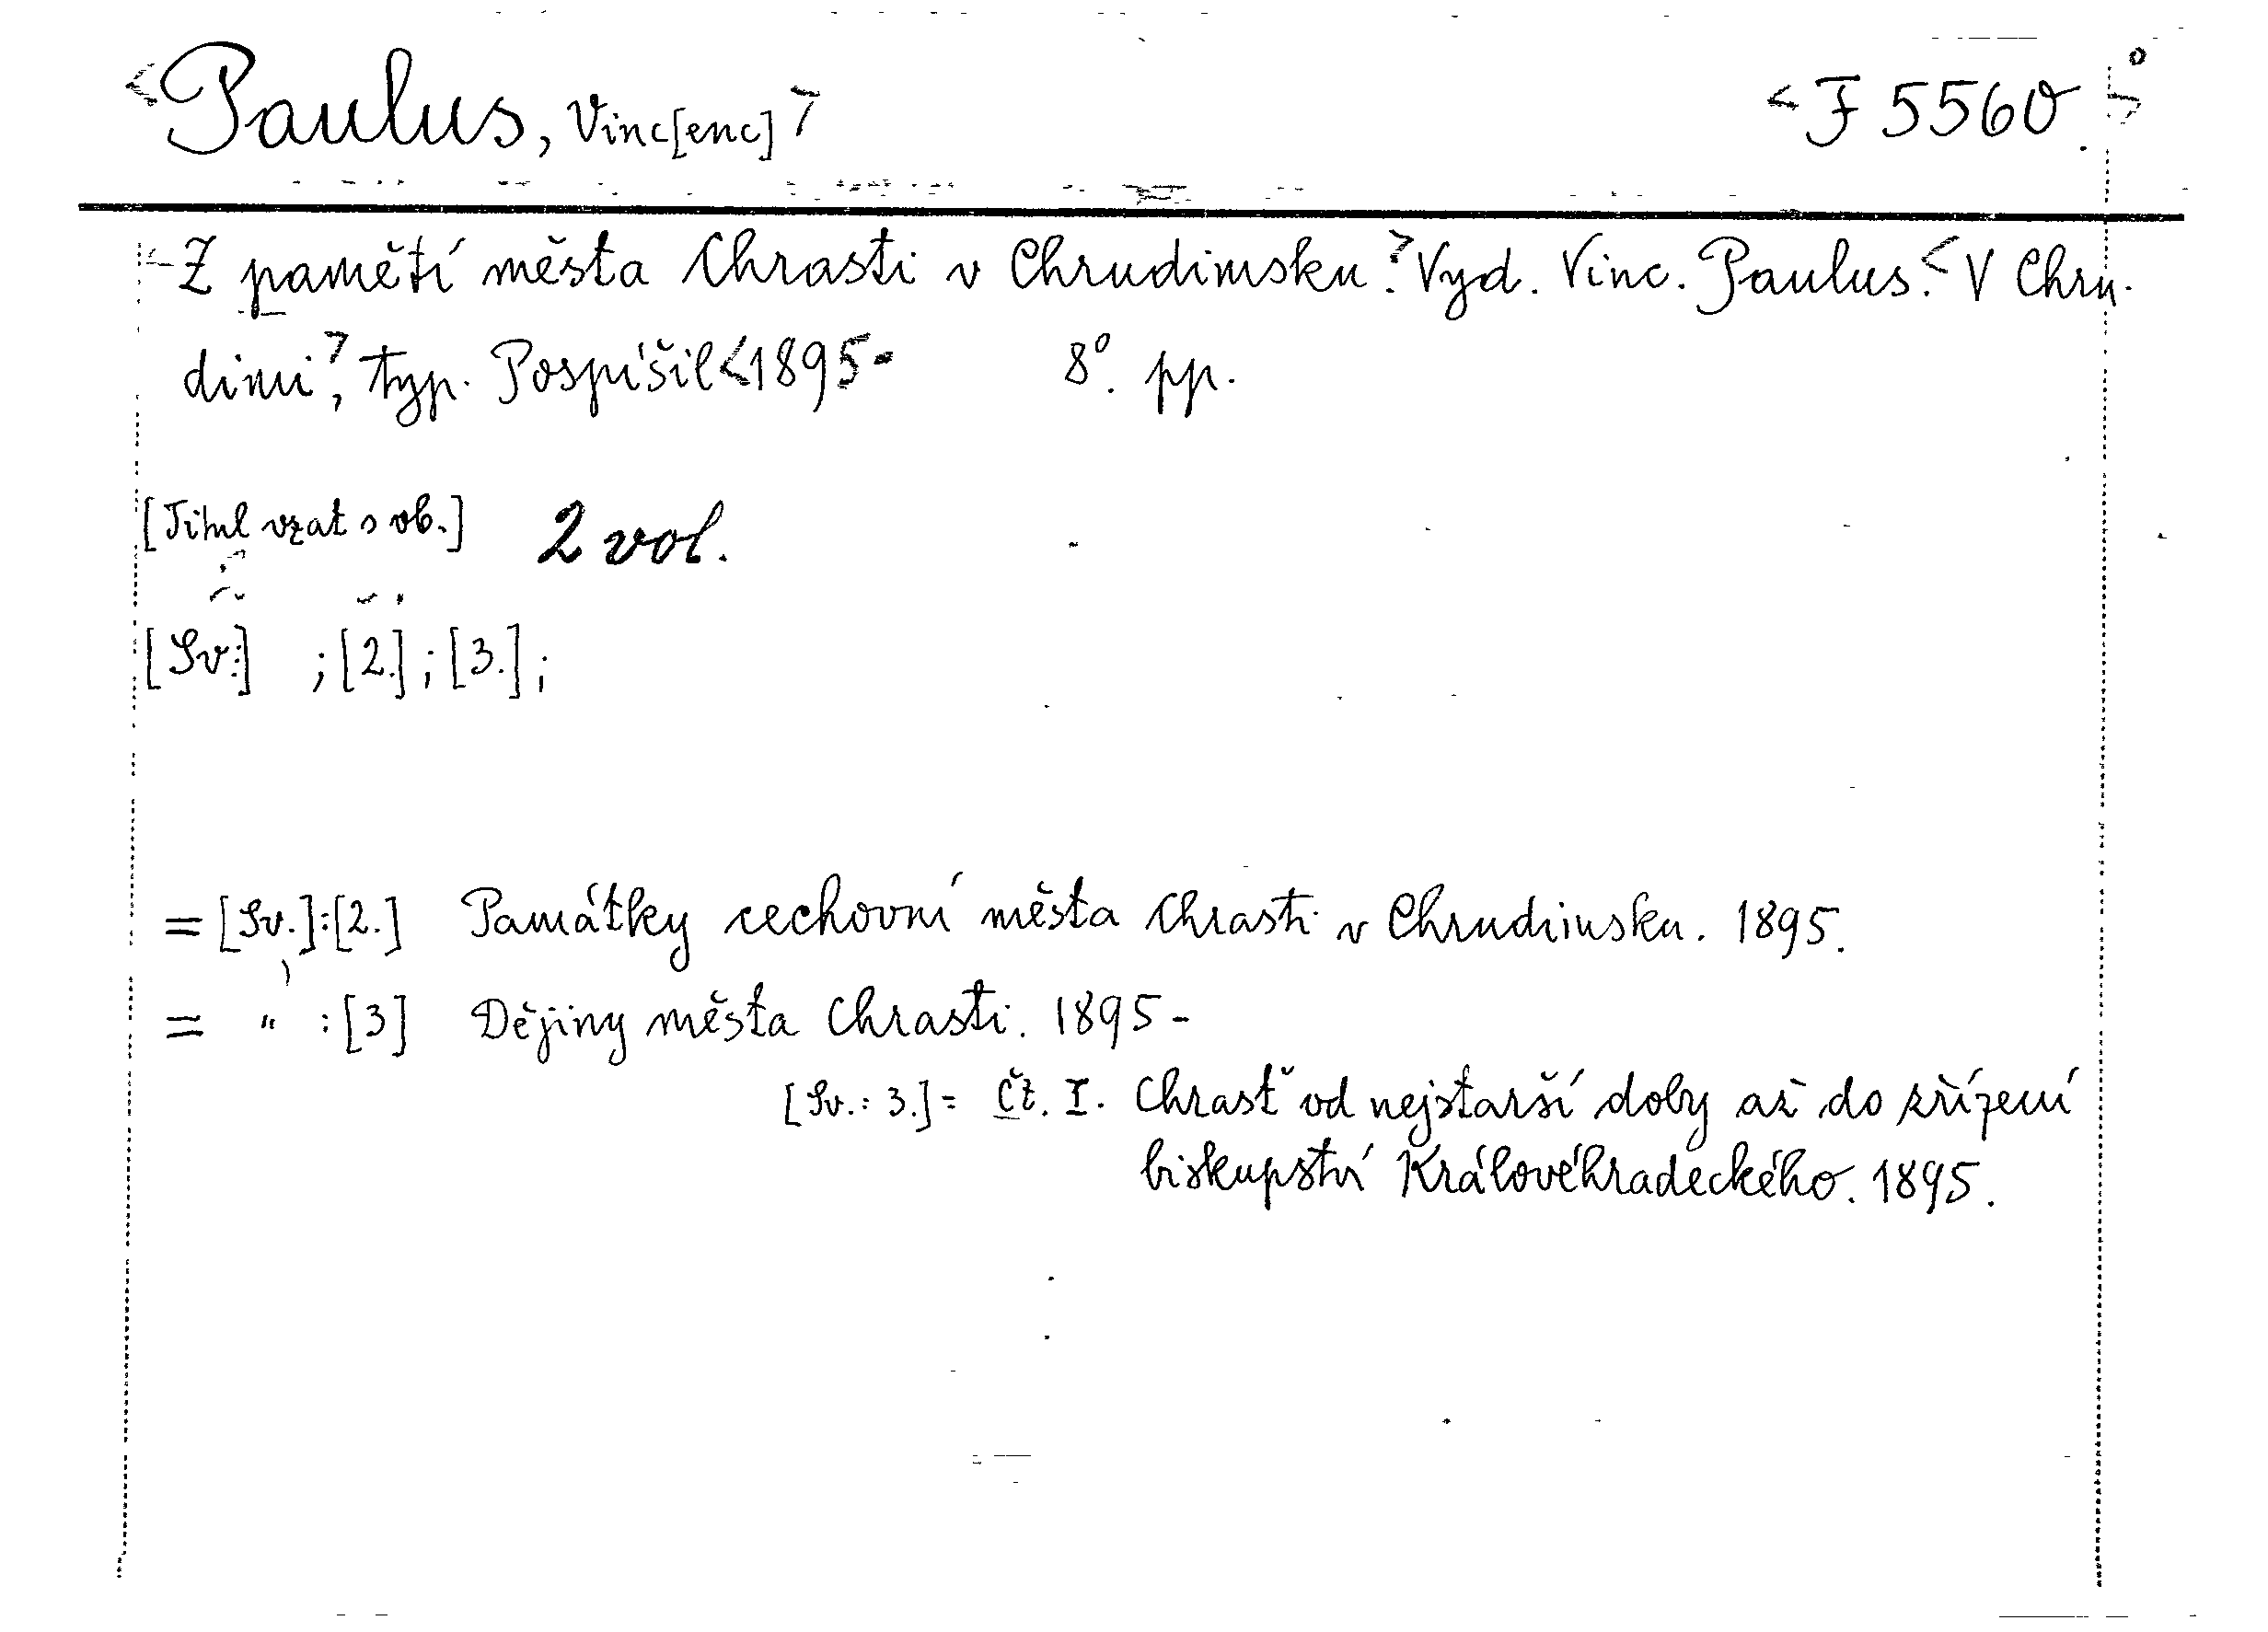 <Paulus, Vinc[enc]> <F 5560.>
<Z pamětí města Chrasti v Chrudimsku>. Vyd. Vinc. Paulus. <V Chru-
dimi>, typ. Pospíšil <1895- 8°. pp.
[Titul vzat s ob.] 2 vol.
[Sv.:] ; [2.] ; [3.] ;
= [Sv.]:[2.] Památky cechovní města Chrasti v Chrudimsku. 1895.
= " : [3] Dějiny města Chrasti. 1895-
[Sv.: 3.] = Čt. I. Chrast od nejstarší doby až do zřízení
biskupství Královéhradeckého. 1895.